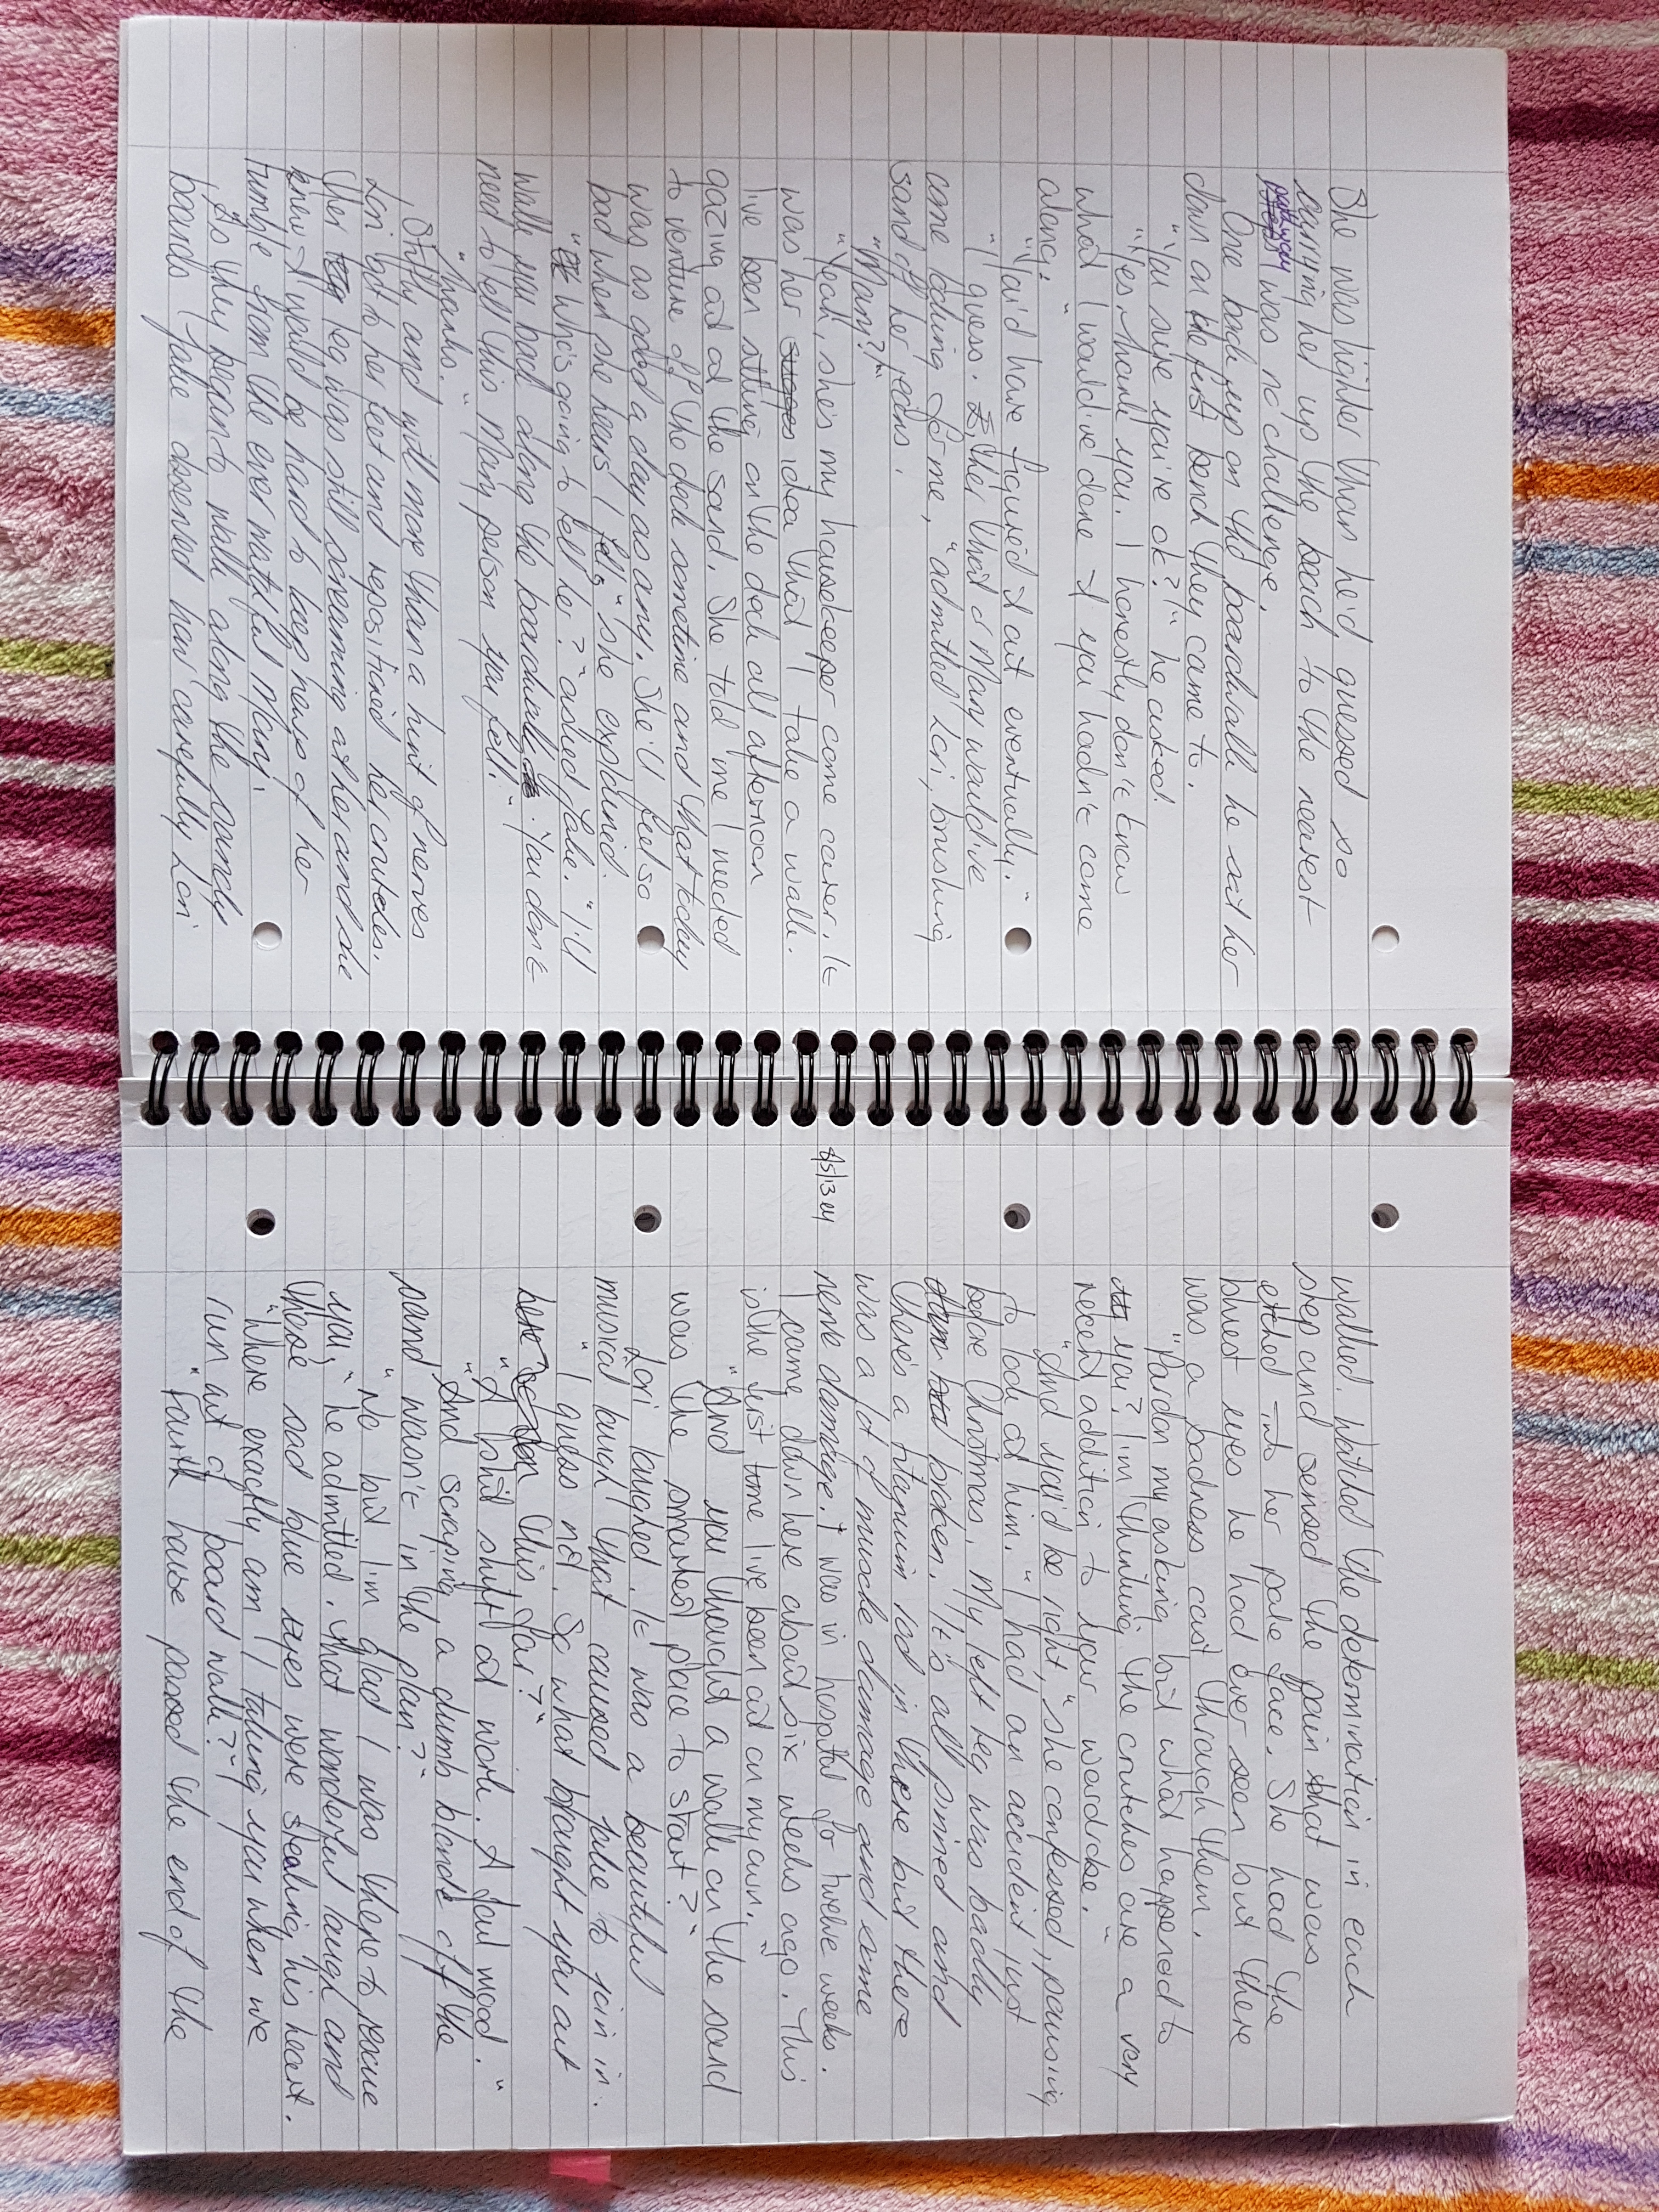 She was lighter than he'd guessed so
carrying her up the beach to the nearest
pathway was no challenge.
One back up on the boardwalk he sat her
down on the first bend they came to.
"You sure you're ok?" he asked.
"Yes, thank you. I honestly don't know
what I would've done if you hadn't come
along."
"You'd have figured it out eventually."
"I guess. Either that or Mary would've
come looking for me," admitted Lori, brushing
sand off her jeans.
"Mary?"
"Yeah, she's my housekeeper come carer. It
was her idea that I take a walk.
I've been sitting on the deck all afternoon
gazing at the sand. She told me I needed
to venture off the deck sometime and that today
was as good a day as any. She'll feel so
bad when she hears I fell," she explained
"Who's going to tell her?" asked Jake. "I'll
walk you back along the boardwalk. You don't
need to tell this Mary person you fell."
"Thanks."
Stiffly and with more than a hint of nerves
Lori got to her feet and repositioned her crutches.
Her leg was still screaming at her and she
knew it would be hard to keep news of her
tumble from the ever watchful Mary.
As they began to walk along the sandy
boards Jake observed how carefully Lori
walked. Watched the determination in each
step and sensed the pain that was
etched into her pale face. She had the
bluest eyes he had ever seen but there
was a sadness cast through them.
"Pardon my asking but what happened to
you? I'm thinking the crutches are a very
recent addition to your wardrobe."
"And you'd be right," she confessed, pausing
to look at him. "I had an accident just
before Christmas. My left leg was badly
broken. It's all pinned and
there's a titanium rod in there but there
was a lot of muscle damage and some
8/5/13 e4 nerve damage. I was in hospital for twelve weeks.
I came down here about six weeks ago. This
is the first time I've been out on my own."
"And you thought a walk on the sand
was the smartest place to start?"
Lori laughed. It was a beautiful
musical laugh that caused Jake to join in.
"I guess not. So what brought you out
this far?"
"A bad shift at work. A foul mood."
"And scraping a dumb blonde off the
sand wasn't in the plan?"
"No but I'm glad I was there to rescue
you," he admitted. That wonderful laugh and
those sad blue eyes were stealing his heart.
"Where exactly am I taking you when we
run out of board walk?"
"Fourth house passed the end of the